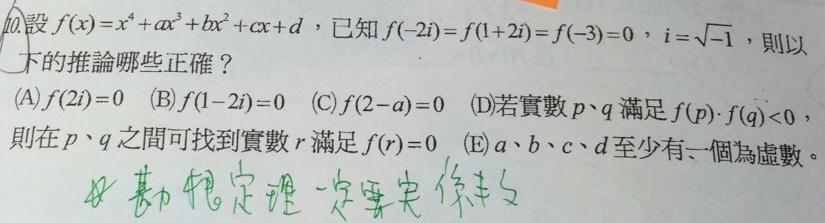 10.設 f(x)=x⁴+ax³+bx²+cx+d，已知 f(-2i)=f(1+2i)=f(-3)=0，i=√-1，則以
下的推論哪些正確？
(A) f(2i)=0 (B) f(1-2i)=0 (C) f(2-a)=0 (D)若實數 p、q 滿足 f(p)·f(q)<0，
則在 p、q 之間可找到實數 r 滿足 f(r)=0 (E) a、b、c、d 至少有一個為虛數。
勘根定理一定要實係數